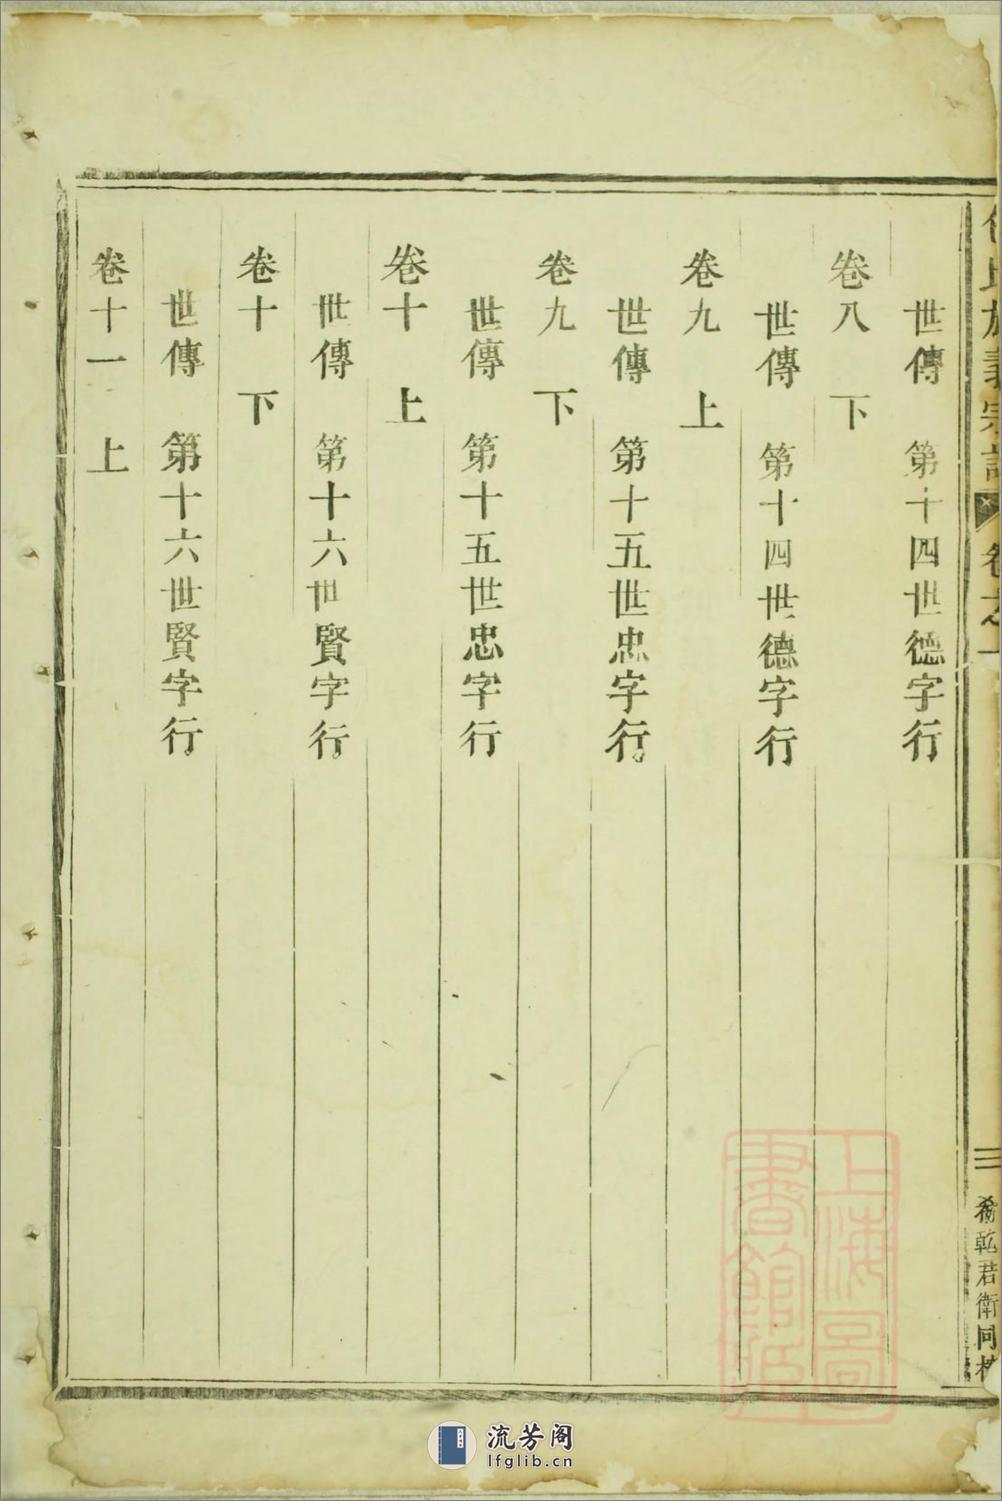 世傳 第十四世德字行
卷八 下
世傳 第十四世德字行
卷九 上
世傳 第十五世忠字行
卷九 下
世傳 第十五世忠字行
卷十 上
世傳 第十六世賢字行
卷十 下
世傳 第十六世賢字行
卷十一 上
氏族義宗譜 卷之一
三
乾君衛同
上海圖書館藏
流芳阁
lfglib.cn